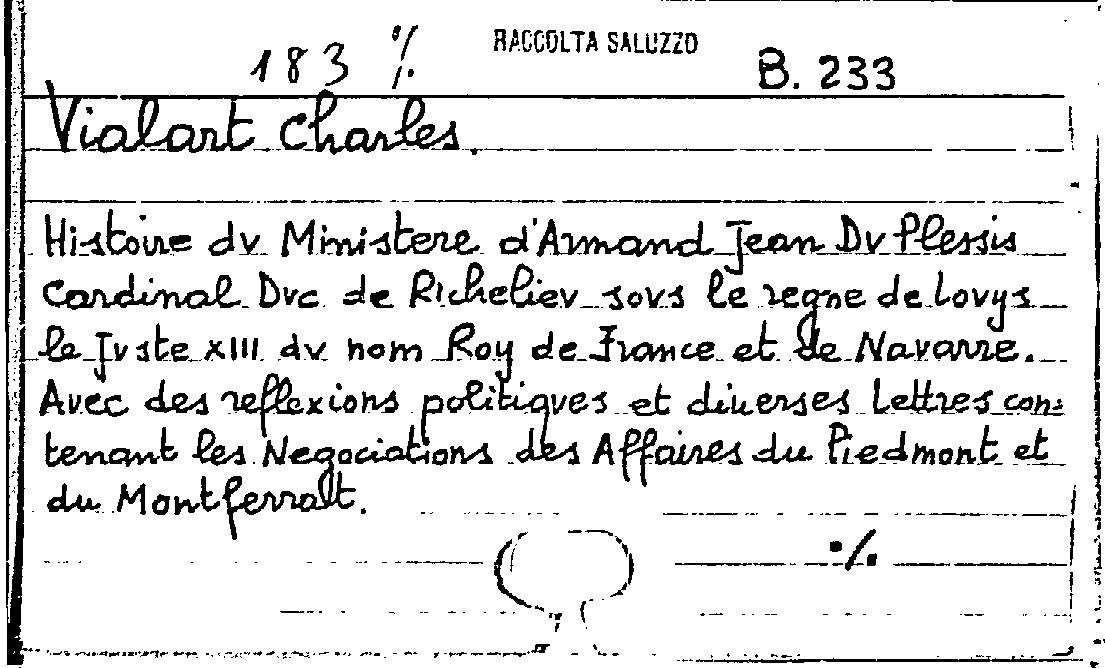 RACCOLTA SALUZZO
183 ./. B. 233
Vialart Charles.
Histoire dv Ministere d'Armand Jean Dv Plessis
Cardinal Dvc de Richeliev sovs le regne de Lovys
le Jvste XIII dv nom Roy de France et de Navarre.
Avec des reflexions politiqves et diuerses Lettres con=
tenant les Negociations des Affaires du Piedmont et
du Montferralt.
./.